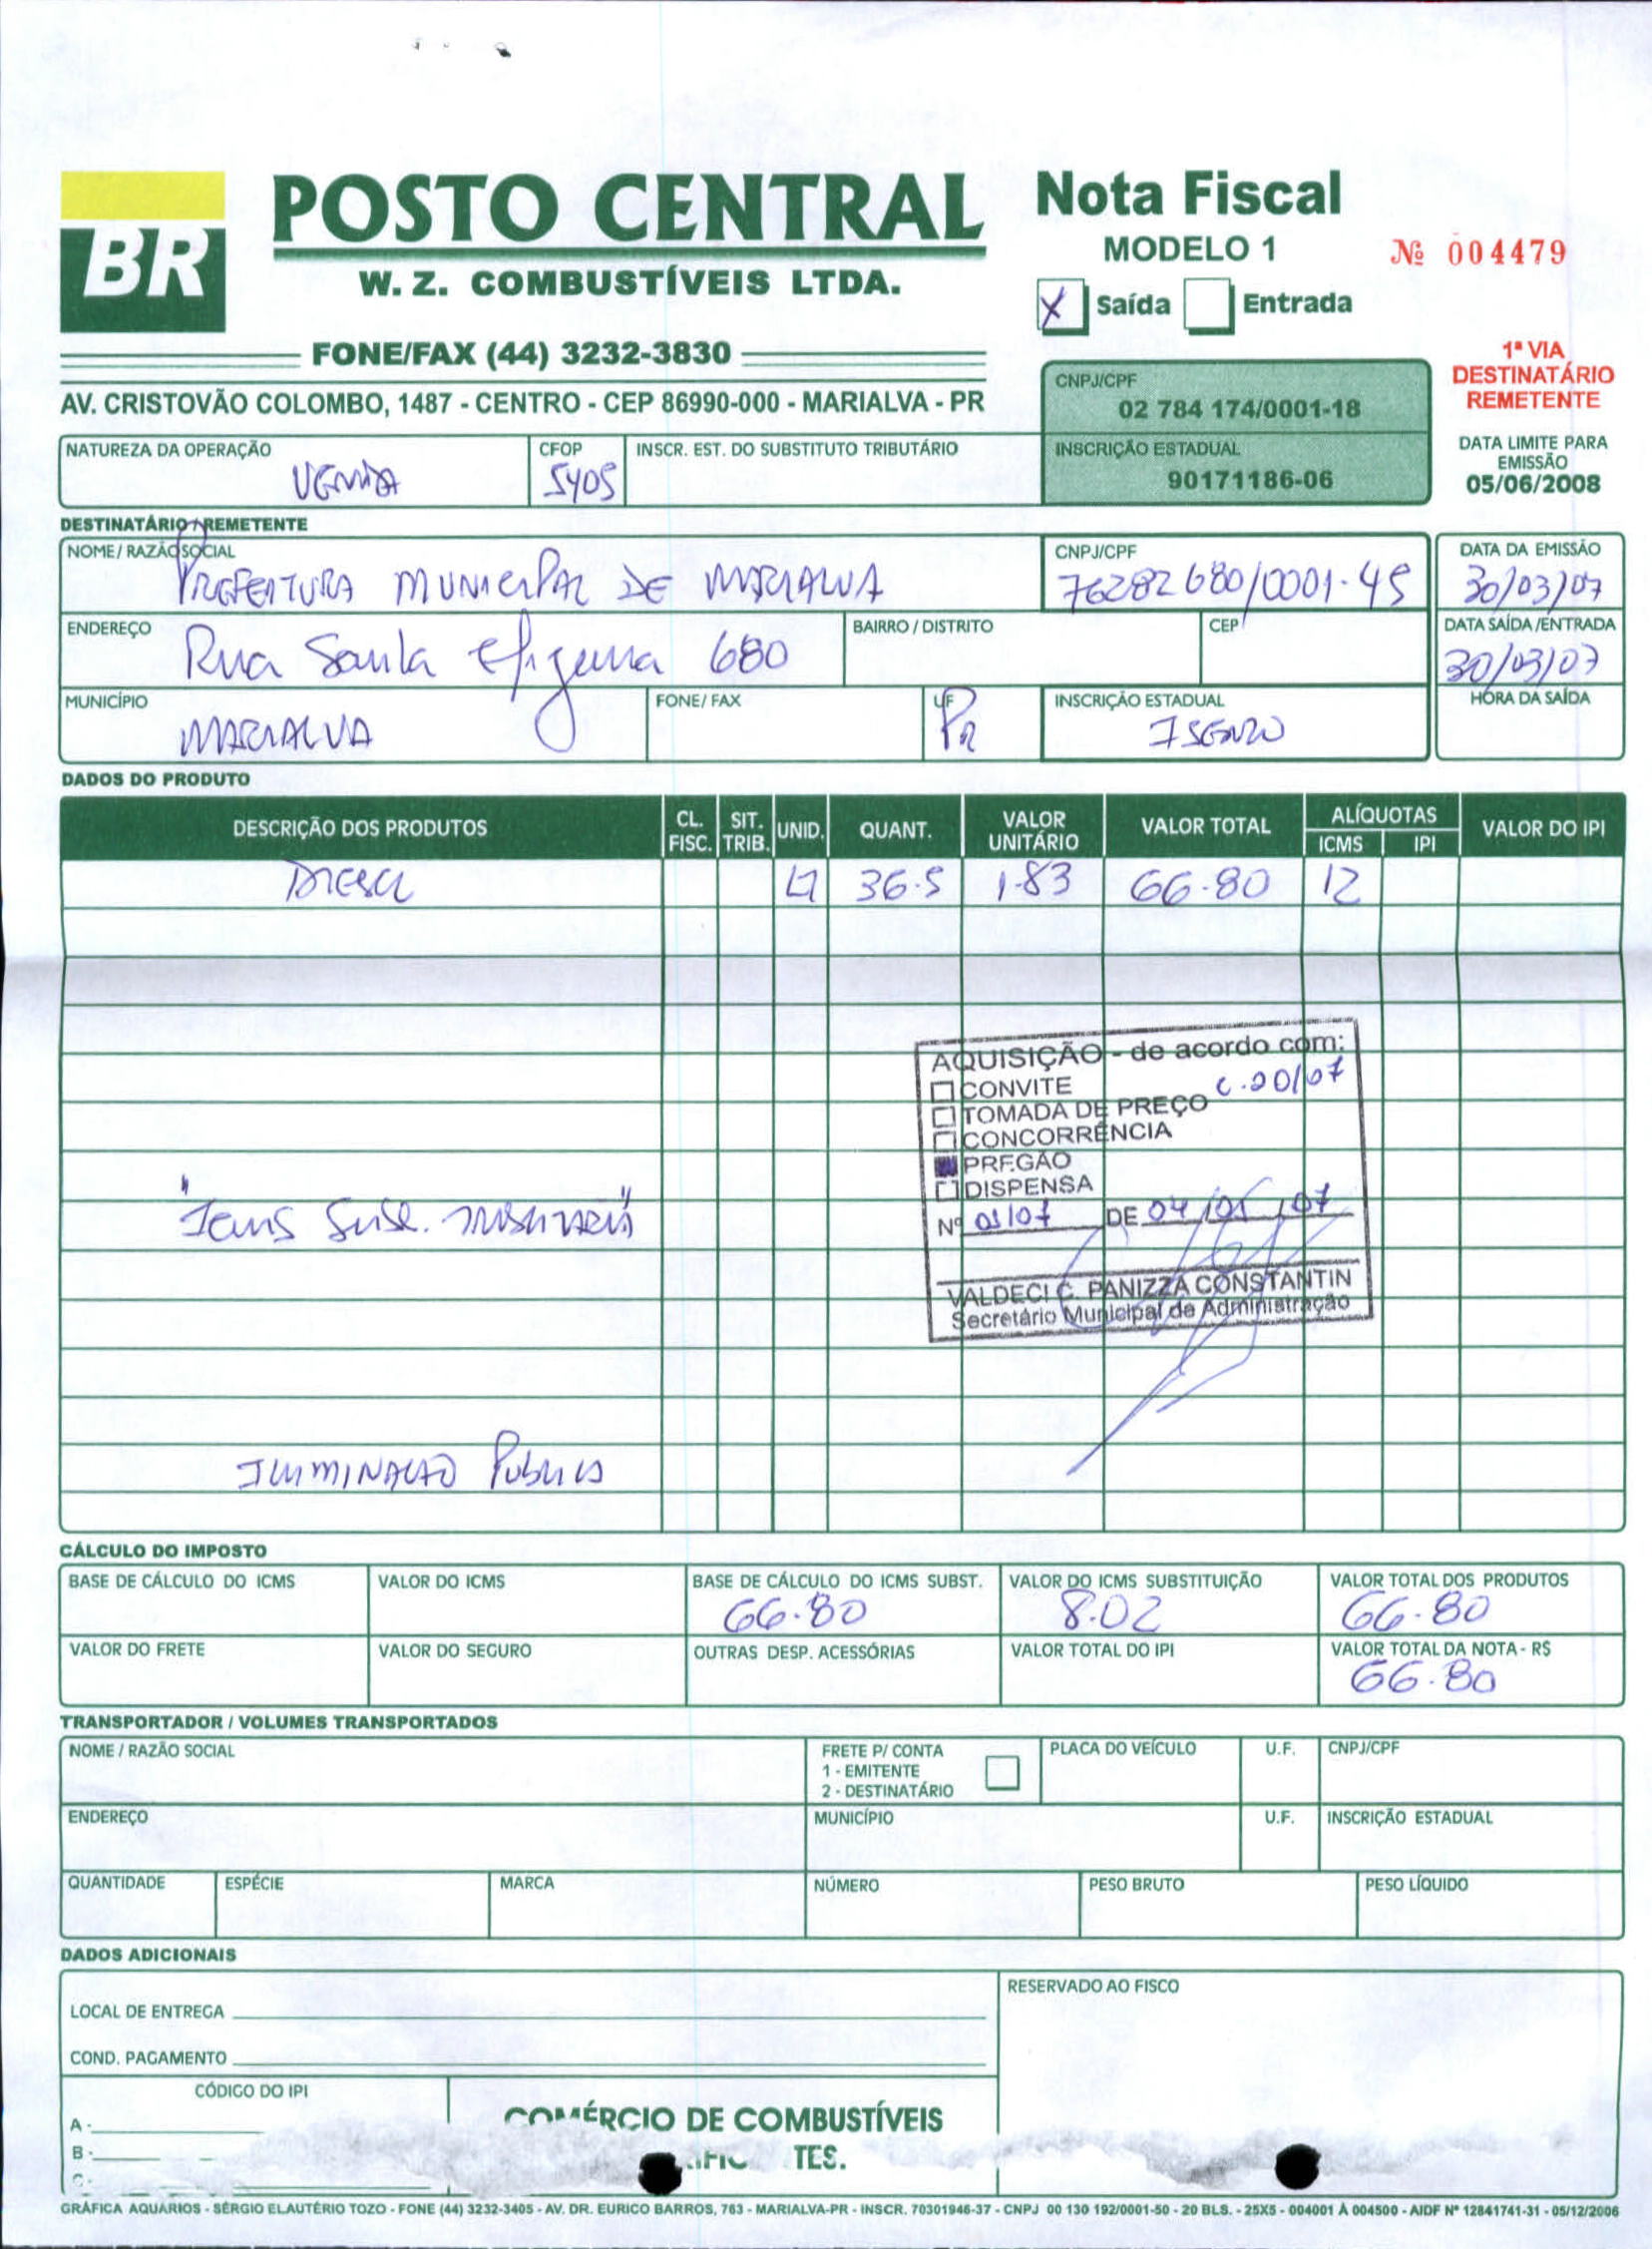 BR
POSTO CENTRAL
W. Z. COMBUSTÍVEIS LTDA.
FONE/FAX (44) 3232-3830
AV. CRISTOVÃO COLOMBO, 1487 - CENTRO - CEP 86990-000 - MARIALVA - PR
Nota Fiscal
MODELO 1
Nº 004479
X Saída Entrada
1ª VIA
DESTINATÁRIO
REMETENTE
CNPJ/CPF
02 784 174/0001-18
INSCRIÇÃO ESTADUAL
90171186-06
DATA LIMITE PARA
EMISSÃO
05/06/2008
NATUREZA DA OPERAÇÃO CFOP INSCR. EST. DO SUBSTITUTO TRIBUTÁRIO
VENDA 5405
DESTINATÁRIO / REMETENTE
NOME / RAZÃO SOCIAL CNPJ/CPF DATA DA EMISSÃO
PREFEITURA MUNICIPAL DE MARIALVA 76282680/0001-45 30/03/07
ENDEREÇO BAIRRO / DISTRITO CEP DATA SAÍDA /ENTRADA
Rua Santa Efigenia 680 30/03/07
MUNICÍPIO FONE/ FAX UF INSCRIÇÃO ESTADUAL HORA DA SAÍDA
MARIALVA PR ISENTO
DADOS DO PRODUTO
DESCRIÇÃO DOS PRODUTOS CL. FISC. SIT. TRIB. UNID. QUANT. VALOR UNITÁRIO VALOR TOTAL ALÍQUOTAS ICMS IPI VALOR DO IPI
DIESEL LT 36.5 1.83 66.80 12
AQUISIÇÃO - de acordo com:
CONVITE C.20/07
TOMADA DE PREÇO
CONCORRÊNCIA
PREGÃO
DISPENSA
Nº 01/07 DE 04/01/07
VALDECI C. PANIZZA CONSTANTIN
Secretário Municipal de Administração
"Icms Subs.
ILUMINACAO PUBLICA
CÁLCULO DO IMPOSTO
BASE DE CÁLCULO DO ICMS VALOR DO ICMS BASE DE CÁLCULO DO ICMS SUBST. VALOR DO ICMS SUBSTITUIÇÃO VALOR TOTAL DOS PRODUTOS
66.80 8.02 66.80
VALOR DO FRETE VALOR DO SEGURO OUTRAS DESP. ACESSÓRIAS VALOR TOTAL DO IPI VALOR TOTAL DA NOTA - R$
66.80
TRANSPORTADOR / VOLUMES TRANSPORTADOS
NOME / RAZÃO SOCIAL FRETE P/ CONTA PLACA DO VEÍCULO U.F. CNPJ/CPF
1 - EMITENTE
2 - DESTINATÁRIO
ENDEREÇO MUNICÍPIO U.F. INSCRIÇÃO ESTADUAL
QUANTIDADE ESPÉCIE MARCA NÚMERO PESO BRUTO PESO LÍQUIDO
DADOS ADICIONAIS
RESERVADO AO FISCO
LOCAL DE ENTREGA
COND. PAGAMENTO
CÓDIGO DO IPI
A -
B -
C -
COMÉRCIO DE COMBUSTÍVEIS
TES.
GRÁFICA AQUARIOS - SÉRGIO ELAUTÉRIO TOZO - FONE (44) 3232-3405 - AV. DR. EURICO BARROS, 763 - MARIALVA-PR - INSCR. 70301946-37 - CNPJ 00 130 192/0001-50 - 20 BLS. - 25X5 - 004001 À 004500 - AIDF Nº 12841741-31 - 05/12/2006